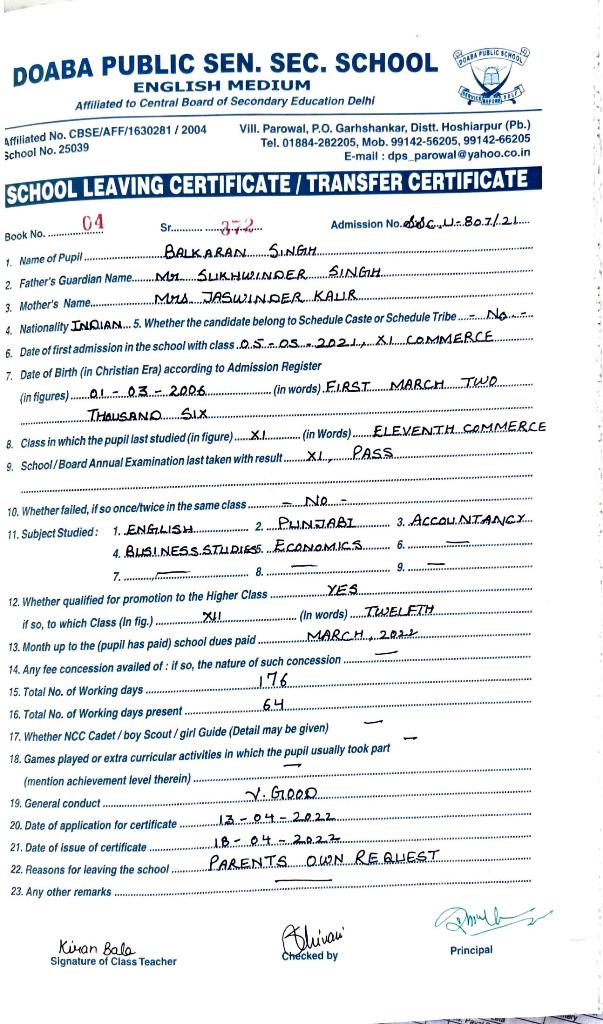 DOABA PUBLIC SEN. SEC. SCHOOL
ENGLISH MEDIUM
Affiliated to Central Board of Secondary Education Delhi
DOABA PUBLIC SCHOOL
Affiliated No. CBSE/AFF/1630281 / 2004
School No. 25039
Vill. Parowal, P.O. Garhshankar, Distt. Hoshiarpur (Pb.)
Tel. 01884-282205, Mob. 99142-56205, 99142-66205
E-mail : dps_parowal@yahoo.co.in
SCHOOL LEAVING CERTIFICATE / TRANSFER CERTIFICATE
Book No. 04 Sr. 372 Admission No. SSC.U-807/21
1. Name of Pupil BALKARAN SINGH
2. Father's Guardian Name MR SUKHWINDER SINGH
3. Mother's Name MRS JASWINDER KAUR
4. Nationality INDIAN 5. Whether the candidate belong to Schedule Caste or Schedule Tribe - No -
6. Date of first admission in the school with class 05-05-2021, XI COMMERCE
7. Date of Birth (in Christian Era) according to Admission Register
(in figures) 01-03-2006 (in words) FIRST MARCH TWO
THOUSAND SIX
8. Class in which the pupil last studied (in figure) XI (in Words) ELEVENTH COMMERCE
9. School / Board Annual Examination last taken with result XI, PASS
10. Whether failed, if so once/twice in the same class - No -
11. Subject Studied : 1. ENGLISH 2. PUNJABI 3. ACCOUNTANCY
4. BUSINESS STUDIES 5. ECONOMICS 6. —
7. — 8. — 9. —
12. Whether qualified for promotion to the Higher Class YES
if so, to which Class (In fig.) XII (In words) TWELFTH
13. Month up to the (pupil has paid) school dues paid MARCH, 2022
14. Any fee concession availed of : if so, the nature of such concession —
15. Total No. of Working days 176
16. Total No. of Working days present 64
17. Whether NCC Cadet / boy Scout / girl Guide (Detail may be given) —
18. Games played or extra curricular activities in which the pupil usually took part —
(mention achievement level therein) —
19. General conduct V. GOOD
20. Date of application for certificate 13-04-2022
21. Date of issue of certificate 18-04-2022
22. Reasons for leaving the school PARENTS OWN REQUEST
23. Any other remarks —
Kiran Bala
Signature of Class Teacher
Shivani
Checked by
Principal